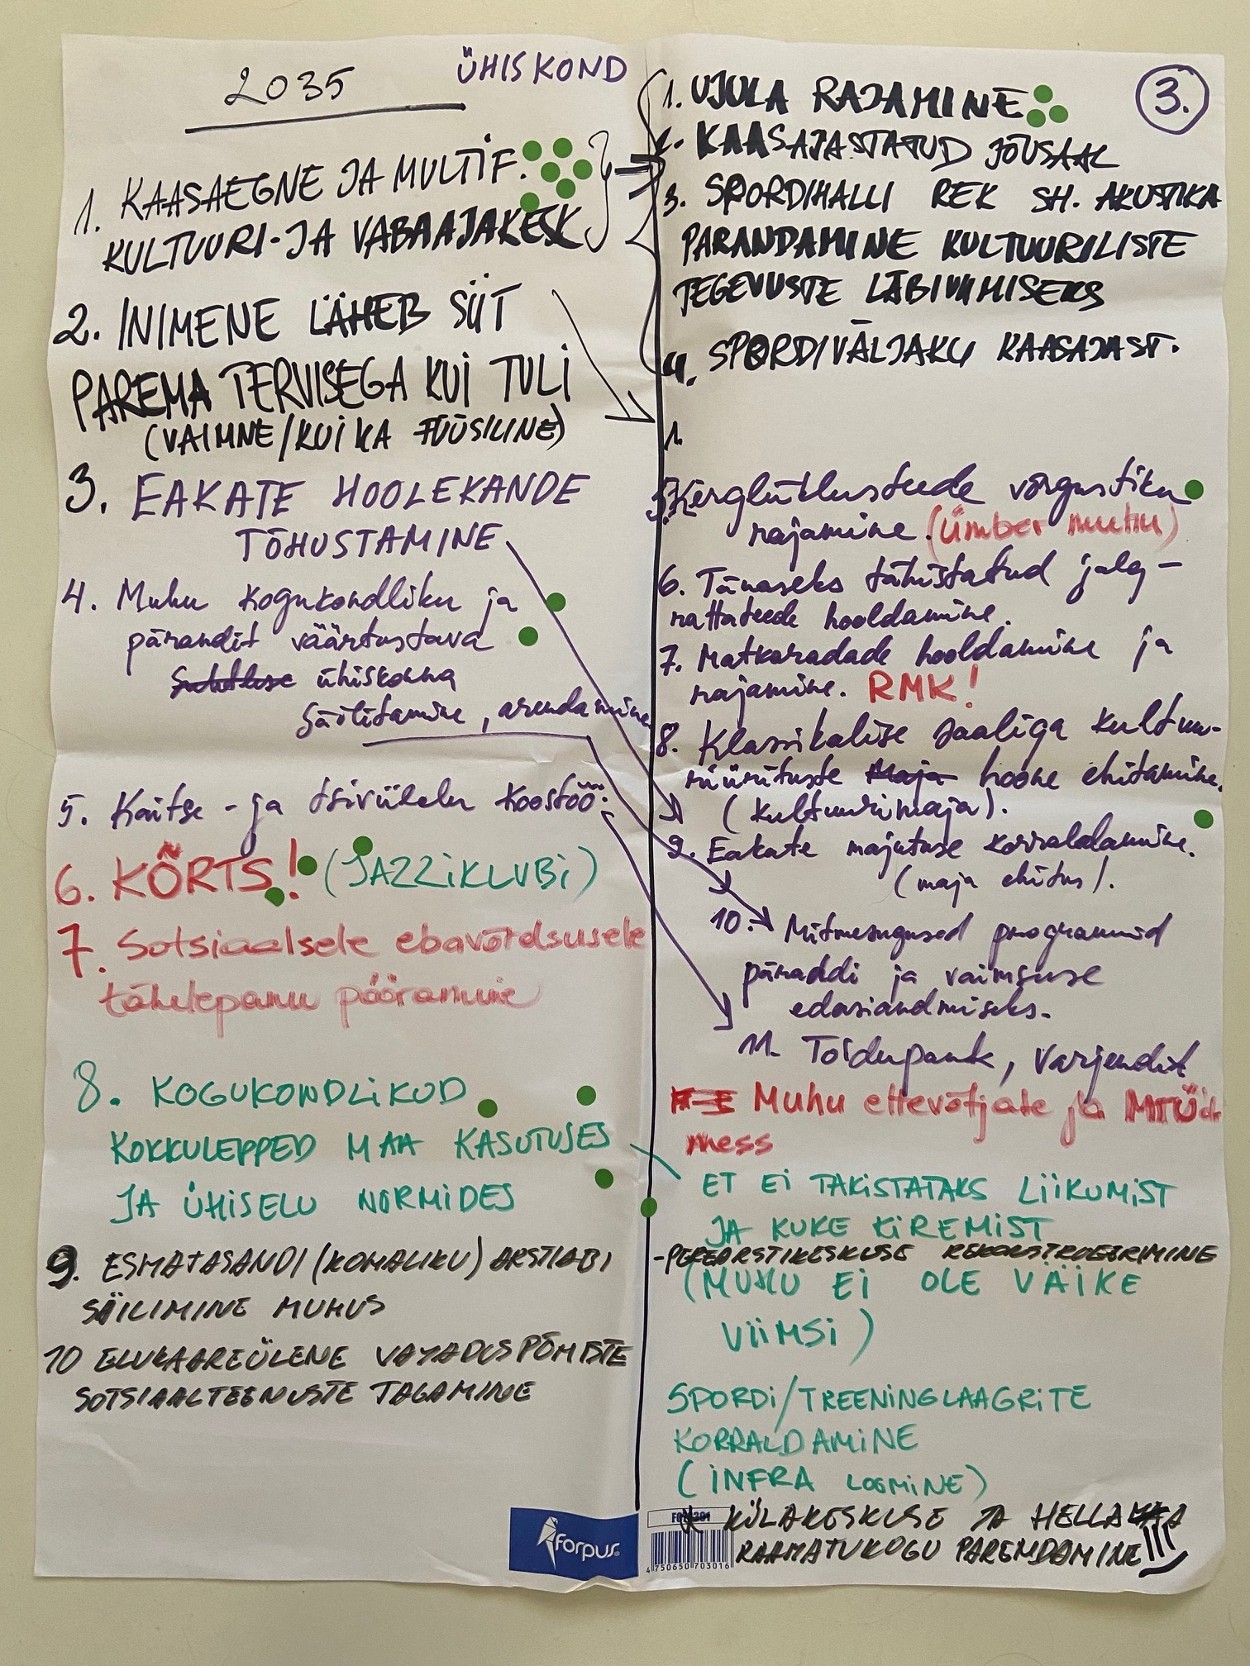 2035
ÜHISKOND
3.
1. KAASAEGNE JA MULTIF.
KULTUURI-JA VABAAJAKESK
2. INIMENE LÄHEB SIIT
PAREMA TERVISEGA KUI TULI
(VAIMNE/KUI KA FÜÜSILINE)
3. EAKATE HOOLEKANDE
TÕHUSTAMINE
4. Muhu kogukondliku ja
pärandit väärtustava
suhtluse ühiskonna
säilitamine, arendamine
5. Kaitse- ja tsiviilelu koostöö.
6. KÕRTS! (JAZZIKLUBI)
7. Sotsiaalsele ebavõrdsusele
tähelepanu pööramine
8. KOGUKONDLIKUD
KOKKULEPPED MAA KASUTUSES
JA ÜHISELU NORMIDES
9. ESMATASANDI (KOHALIKU) ARSTIABI
SÄILIMINE MUHUS
10 ELUKAAREÜLENE VAJADUSPÕHISTE
SOTSIAALTEENUSTE TAGAMINE
1. UJULA RAJAMINE
2. KAASAJASTATUD JÕUSAAL
3. SPORDIHALLI REK SH. AKUSTIKA
PARANDAMINE KULTUURILISTE
TEGEVUSTE LÄBIVIIMISEKS
4. SPORDIVÄLJAKU KAASAJAST.
1.
5. Kergliiklusteede võrgustiku
rajamine. (Ümber muhu)
6. Tänaseks tähistatud jalg-
rattateede hooldamine.
7. Matkaradade hooldamine ja
rajamine. RMK!
8. Klassikalise saaliga kultuu-
riürituste Maja hoone ehitamine.
(kultuurimaja).
9. Eakate majutuse korraldamine.
(maja ehitus).
10. Mitmesugused programmid
pärandi ja vaimsuse
edasiandmiseks.
11. Toidupank, varjendid
Muhu ettevõtjate ja MTÜde
mess
ET EI TAKISTATAKS LIIKUMIST
JA KUKE KIREMIST
-PEREARSTIKESKUSE REKONSTRUEERIMINE
(MUHU EI OLE VÄIKE
VIIMSI)
SPORDI/TREENINGLAAGRITE
KORRALDAMINE
(INFRA LOOMINE)
KÜLAKESKUSE JA HELLAMAA
RAAMATUKOGU PARENDAMINE!!!
forpus
4 750650 703016